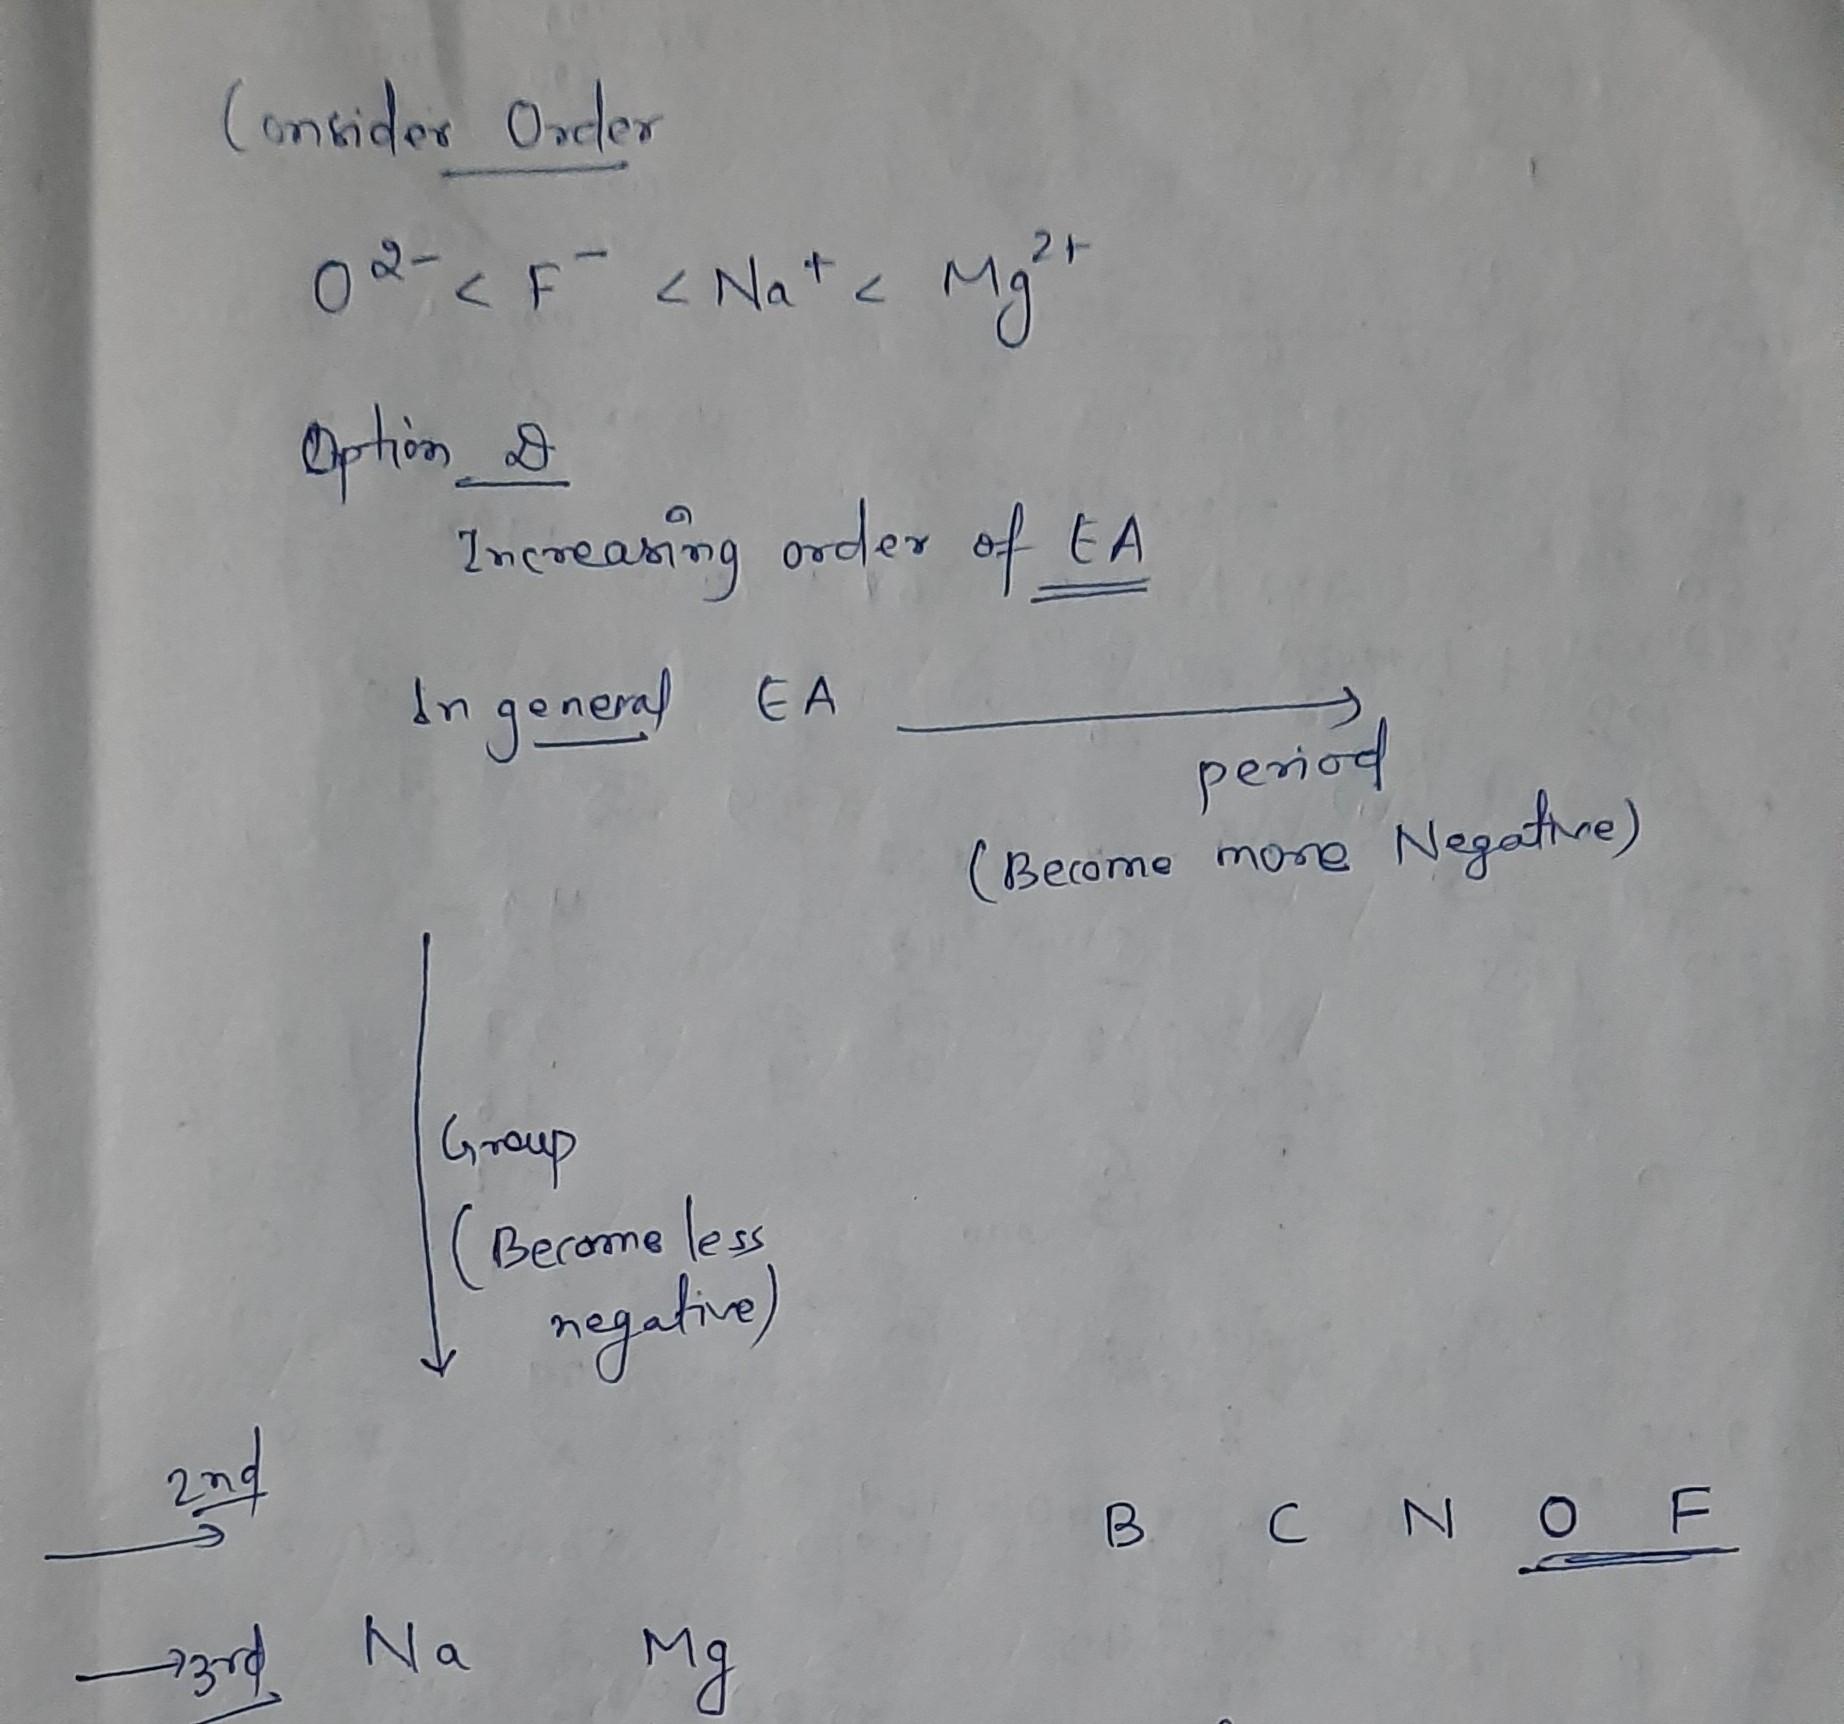 Consider Order
O²⁻ < F⁻ < Na⁺ < Mg²⁺
Option D
Increasing order of EA
In general EA
period
(Become more Negative)
Group
(Become less
negative)
2nd
B C N O F
3rd Na Mg